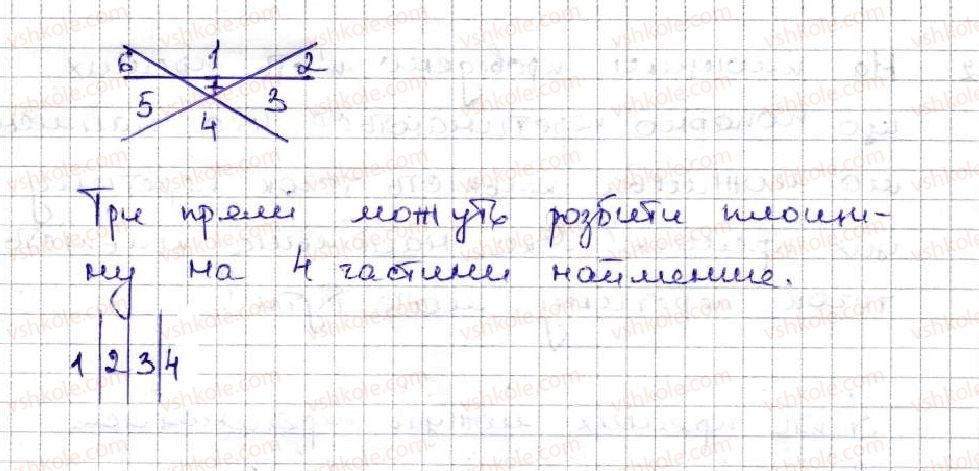 6 1 2
5 7 3
4
Три прямі можуть розбити площи-
ну на 4 частини найменше.
1 2 3 4
vshkole.com